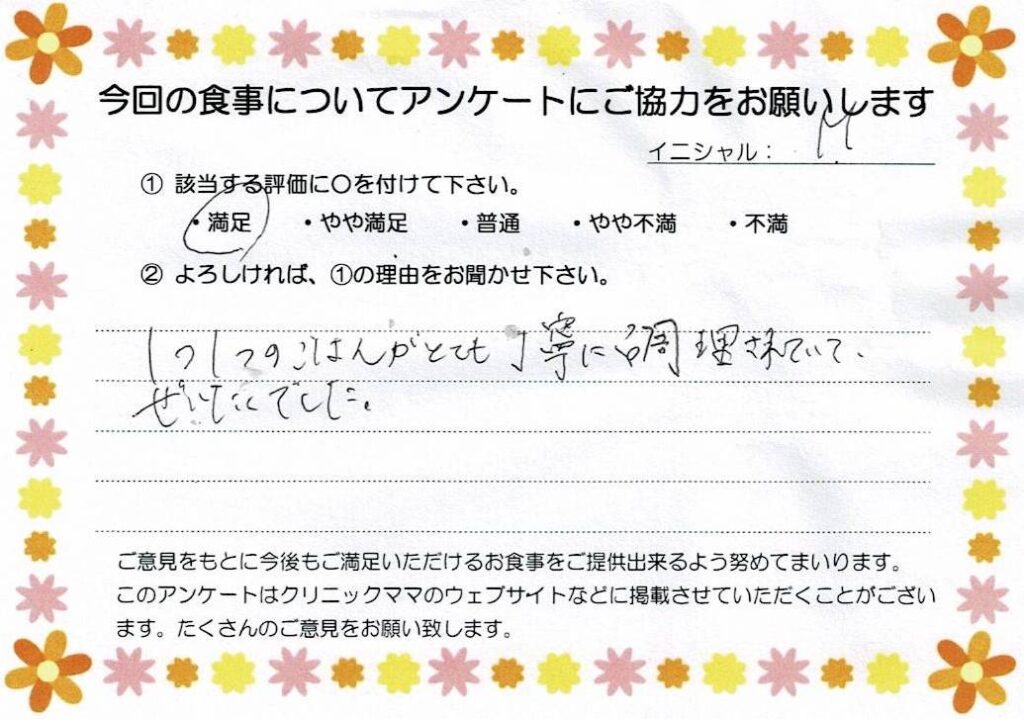 今回の食事についてアンケートにご協力をお願いします
イニシャル： M
① 該当する評価に〇を付けて下さい。
・満足 ・やや満足 ・普通 ・やや不満 ・不満
② よろしければ、①の理由をお聞かせ下さい。
1つ1つのごはんがとても丁寧に調理されていて、
ぜいたくでした。
ご意見をもとに今後もご満足いただけるお食事をご提供出来るよう努めてまいります。
このアンケートはクリニックママのウェブサイトなどに掲載させていただくことがござい
ます。たくさんのご意見をお願い致します。